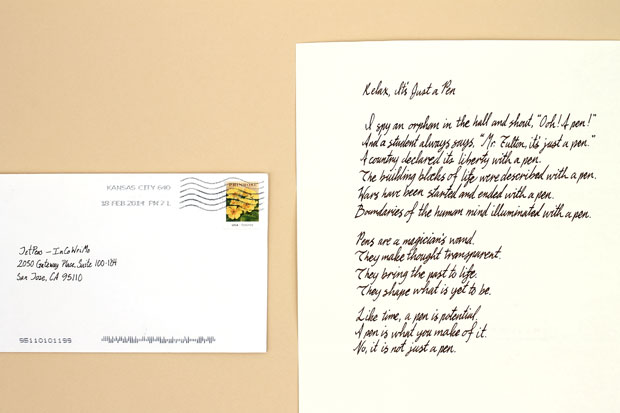 KANSAS CITY 640
18 FEB 2014 PM 7 L
PRIMROSE
JetPens – InCoWriMo
2050 Gateway Place, Suite 100-184
San Jose, CA 95110
95110101199
Relax, It's Just a Pen
I spy an orphan in the hall and shout, "Ooh! A pen!"
And a student always says, "Mr. Fulton, it's just a pen."
A country declared its liberty with a pen.
The building blocks of life were described with a pen.
Wars have been started and ended with a pen.
Boundaries of the human mind illuminated with a pen.
Pens are a magician's wand.
They make thought transparent.
They bring the past to life.
They shape what is yet to be.
Like time, a pen is potential.
A pen is what you make of it.
No, it is not just a pen.